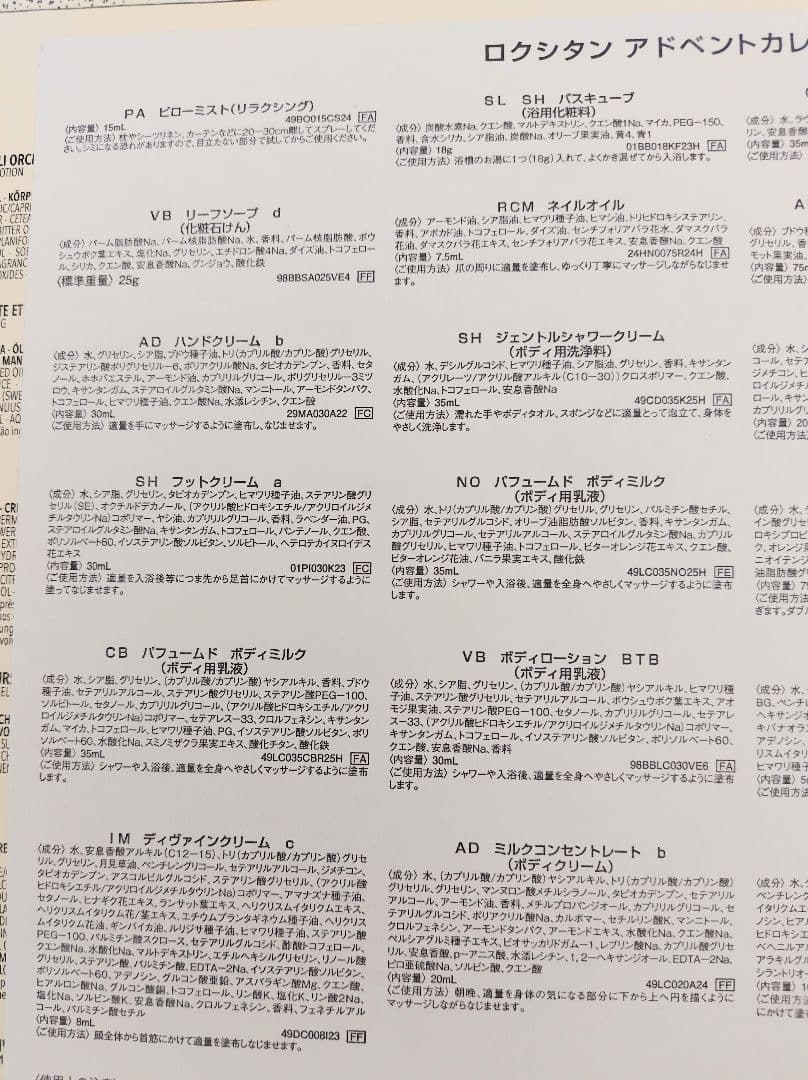 ロクシタン アドベントカレ
PA ピローミスト(リラクシング)
49BO015CS24 FA
〈内容量〉15mL
〈ご使用方法〉枕やシーツリネン、カーテンなどに20−30cm離してスプレーしてくだ
さい。シミになる恐れがありますので、目立たない部分で試してからご使用ください。
VB リーフソープ d
(化粧石けん)
〈成分〉パーム脂肪酸Na、パーム核脂肪酸Na、水、香料、パーム核脂肪酸、ボウ
シュウボク葉エキス、塩化Na、グリセリン、エチドロン酸4Na、ダイズ油、トコフェロー
ル、シリカ、クエン酸、安息香酸Na、グンジョウ、酸化鉄
〈標準重量〉25g
98BBSA025VE4 FF
AD ハンドクリーム b
〈成分〉水、グリセリン、シア脂、ブドウ種子油、トリ(カプリル酸/カプリン酸)グリセリル、
ジステアリン酸ポリグリセリル−6、ポリアクリル酸Na、タピオカデンプン、香料、セタ
ノール、ホホバエステル、アーモンド油、カプリルグリコール、ポリグリセリル−3ミツ
ロウ、キサンタンガム、ステアロイルグルタミン酸Na、マンニトール、アーモンドタンパク、
トコフェロール、ヒマワリ種子油、クエン酸Na、水添レシチン、クエン酸
〈内容量〉30mL
29MA030A22 FC
〈ご使用方法〉適量を手にマッサージするように塗布し、なじませます。
SH フットクリーム a
〈成分〉水、シア脂、グリセリン、タピオカデンプン、ヒマワリ種子油、ステアリン酸グリ
セリル(SE)、オクチルドデカノール、(アクリル酸ヒドロキシエチル/アクリロイルジメ
チルタウリンNa)コポリマー、ヤシ油、カプリルグリコール、香料、ラベンダー油、PG、
ステアロイルグルタミン酸Na、キサンタンガム、トコフェロール、パンテノール、クエン酸、
ポリソルベート60、イソステアリン酸ソルビタン、ソルビトール、ヘテロテカイヌロイデス
花エキス
〈内容量〉30mL
01PI030K23 FC
〈ご使用方法〉適量を入浴後等につま先から足首にかけてマッサージするように
塗ってなじませます。
CB パフュームド ボディミルク
(ボディ用乳液)
〈成分〉水、シア脂、グリセリン、(カプリル酸/カプリン酸)ヤシアルキル、香料、ブドウ
種子油、セテアリルアルコール、ステアリン酸グリセリル、ステアリン酸PEG−100、
ソルビトール、セタノール、カプリルグリコール、(アクリル酸ヒドロキシエチル/アクリ
ロイルジメチルタウリンNa)コポリマー、セテアレス−33、クロルフェネシン、キサンタン
ガム、マイカ、トコフェロール、ヒマワリ種子油、PG、イソステアリン酸ソルビタン、ポリ
ソルベート60、水酸化Na、スミノミザクラ果実エキス、酸化チタン、酸化鉄
〈内容量〉35mL
49LC035CBR25H FA
〈ご使用方法〉シャワーや入浴後、適量を全身へやさしくマッサージするように塗布
します。
IM ディヴァインクリーム c
〈成分〉水、安息香酸アルキル(C12−15)、トリ(カプリル酸/カプリン酸)グリセ
リル、グリセリン、月見草油、ペンチレングリコール、セテアリルアルコール、ジメチコン、
タピオカデンプン、アスコルビルグルコシド、ステアリン酸グリセリル、(アクリル酸
ヒドロキシエチル/アクリロイルジメチルタウリンNa)コポリマー、アマナズナ種子油、
セタノール、ヒナギク花エキス、ランサット葉エキス、ヘリクリスムイタリクムエキス、
ヘリクリスムイタリクム花/茎エキス、エチウムプランタギネウム種子油、ヘリクリス
ムイタリクム花油、ギンバイカ油、ルリジサ種子油、ヒマワリ種子油、ステアリン酸
PEG−100、パルミチン酸スクロース、セテアリルグルコシド、酢酸トコフェロール、
クエン酸Na、水酸化Na、マルトデキストリン、エチルヘキシルグリセリン、リノール酸
グリセリル、ステアリン酸、パルミチン酸、EDTA−2Na、イソステアリン酸ソルビタン、
ポリソルベート60、アデノシン、グルコン酸亜鉛、アスパラギン酸Mg、クエン酸、
ヒアルロン酸Na、グルコン酸銅、トコフェロール、リン酸K、塩化K、リン酸2Na、
塩化Na、ソルビン酸K、安息香酸Na、クロルフェネシン、香料、フェネチルアル
コール、パルミチン酸セチル
〈内容量〉8mL
49DC008I23 FF
〈ご使用方法〉顔全体から首筋にかけて適量を塗布しなじませます。
SL SH バスキューブ
(浴用化粧料)
〈成分〉炭酸水素Na、クエン酸、マルトデキストリン、クエン酸1Na、マイカ、PEG−150、
香料、含水シリカ、シア脂油、炭酸Na、オリーブ果実油、黄4、青1
〈内容量〉18g
01BB018KF23H FA
〈ご使用方法〉浴槽のお湯に1つ(18g)入れて、よくかき混ぜてから入浴します。
RCM ネイルオイル
〈成分〉アーモンド油、シア脂油、ヒマワリ種子油、ヒマシ油、トリヒドロキシステアリン、
香料、アボカド油、トコフェロール、ダイズ油、センチフォリアバラ花水、ダマスクバラ
花油、ダマスクバラ花エキス、センチフォリアバラ花エキス、安息香酸Na、クエン酸
〈内容量〉7.5mL
24HN0075R24H FA
〈ご使用方法〉爪の周りに適量を塗布し、ゆっくり丁寧にマッサージしながらなじませ
ます。
SH ジェントルシャワークリーム
(ボディ用洗浄料)
〈成分〉水、デシルグルコシド、ヒマワリ種子油、シア脂油、グリセリン、香料、キサンタン
ガム、(アクリレーツ/アクリル酸アルキル(C10−30))クロスポリマー、クエン酸、
水酸化Na、トコフェロール、安息香酸Na
〈内容量〉35mL
49CD035K25H FA
〈ご使用方法〉濡れた手やボディタオル、スポンジなどに適量とって泡立て、身体を
やさしく洗浄します。
NO パフュームド ボディミルク
(ボディ用乳液)
〈成分〉水、トリ(カプリル酸/カプリン酸)グリセリル、グリセリン、パルミチン酸セチル、
シア脂、セテアリルグルコシド、オリーブ油脂肪酸ソルビタン、香料、キサンタンガム、
カプリリルグリコール、セテアリルアルコール、ステアロイルグルタミン酸Na、カプリリル
酸グリセリル、ヒマワリ種子油、トコフェロール、ビターオレンジ花エキス、クエン酸、
ビターオレンジ花油、バニラ果実エキス、酸化鉄
〈内容量〉35mL
49LC035NO25H FE
〈ご使用方法〉シャワーや入浴後、適量を全身へやさしくマッサージするように塗布
します。
VB ボディローション BTB
(ボディ用乳液)
〈成分〉水、シア脂、グリセリン、(カプリル酸/カプリン酸)ヤシアルキル、ヒマワリ種
子油、ステアリン酸グリセリル、セテアリルアルコール、ボウシュウボク葉エキス、アオ
モジ果実油、ステアリン酸PEG−100、セタノール、カプリリルグリコール、セテアレ
ス−33、(アクリル酸ヒドロキシエチル/アクリロイルジメチルタウリンNa)コポリマー、
キサンタンガム、トコフェロール、イソステアリン酸ソルビタン、ポリソルベート60、
クエン酸、安息香酸Na、香料
〈内容量〉30mL
98BBLC030VE6 FA
〈ご使用方法〉シャワーや入浴後、適量を全身へやさしくマッサージするように塗布
します。
AD ミルクコンセントレート b
(ボディクリーム)
〈成分〉水、(カプリル酸/カプリン酸)ヤシアルキル、トリ(カプリル酸/カプリン酸)
グリセリル、グリセリン、マンヌロン酸メチルシラノール、タピオカデンプン、セテアリル
アルコール、アーモンド油、香料、メチルプロパンジオール、カプリリルグリコール、セ
テアリルグルコシド、ポリアクリル酸Na、カルボマー、セチルリン酸K、マンニトール、
クロルフェネシン、アーモンドタンパク、アーモンドエキス、水酸化Na、クエン酸Na、
ペルシアグルミ種子エキス、ビオサッカリドガム−1、レブリン酸Na、カプリル酸グリセ
リル、安息香酸、p−アニス酸、水添レシチン、1，2−ヘキサンジオール、EDTA−2Na、
ピロ亜硫酸Na、ソルビン酸、クエン酸
〈内容量〉20mL
49LC020A24 FF
〈ご使用方法〉朝晩、適量を身体の気になる部分に下から上へ円を描くように
マッサージしながら塗布しなじませます。